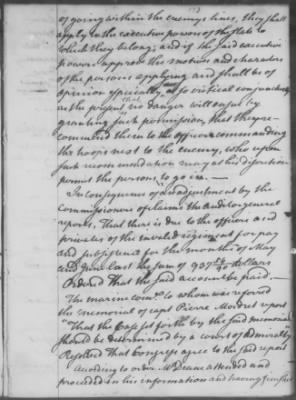 of going within the enemys lines, they shall
apply to the executive powers of the state to
which they belong; and if the said executive
powers approve the motives and characters
of the persons applying and shall be of
opinion especially at so critical conjuncture
as the present that no danger will ensue by
granting such permission, that they re-
commend them to the officer commanding
the troops next to the enemy, who upon
such recommendation may at his discretion
permit the persons to go in.—
In consequence of an adjustment by the
Commissioners of claims the Auditor general
reports, That there is due to the officers and
privates of the invalid regiment for pay
and subsistence for the months of May
and June last the sum of 937 dollars
Ordered That the said account be paid.—
The marine comee to whom was referred
the memorial of capt Pierre Mordrel report
"That the Case set forth by the said memorial
should be determined by a court of Admiralty"
Resolved That Congress agree to the said report
According to order Mr Deane attended and
proceeded in his information and having